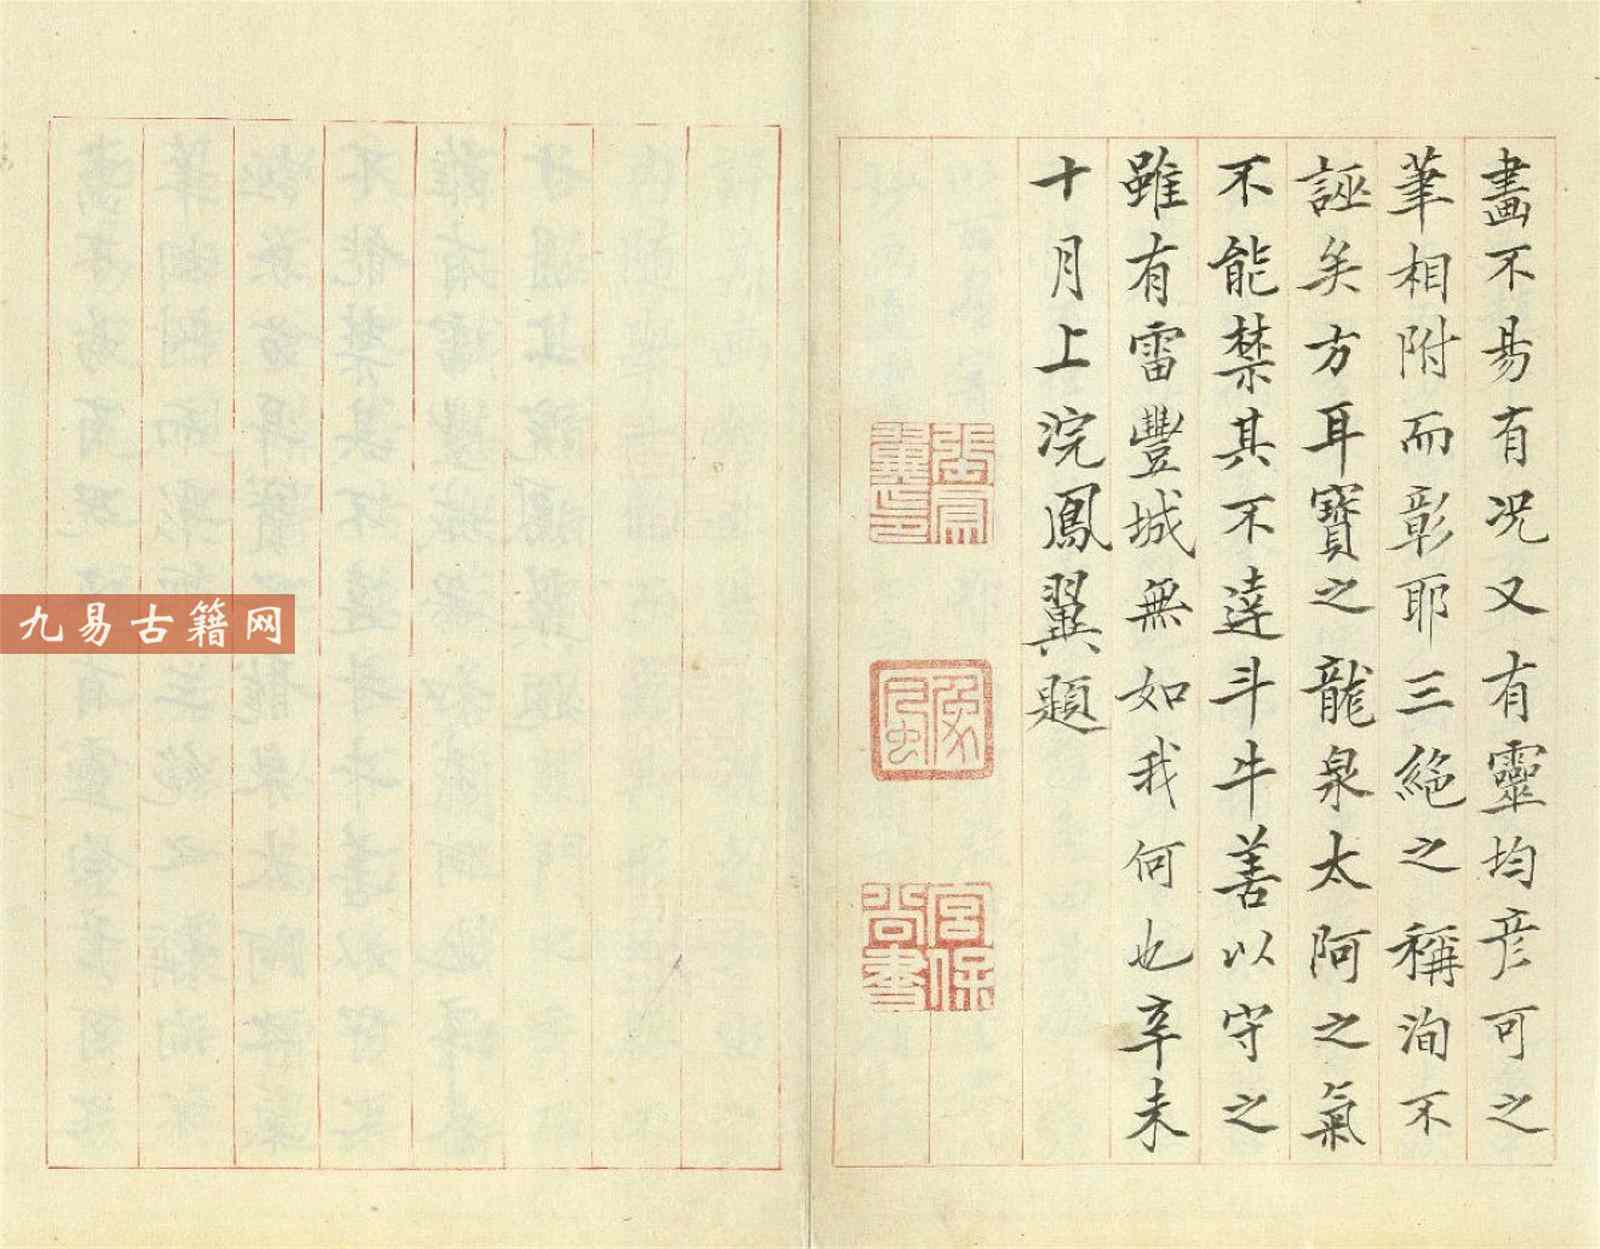 畫不易有况又有靈均彦可之
筆相附而彰耶三絶之稱洵不
誣矣方耳寶之龍泉太阿之氣
不能禁其不達斗牛善以守之
雖有雷豐城無如我何也辛未
十月上浣鳳翼題
宮保
尚書
九易古籍网